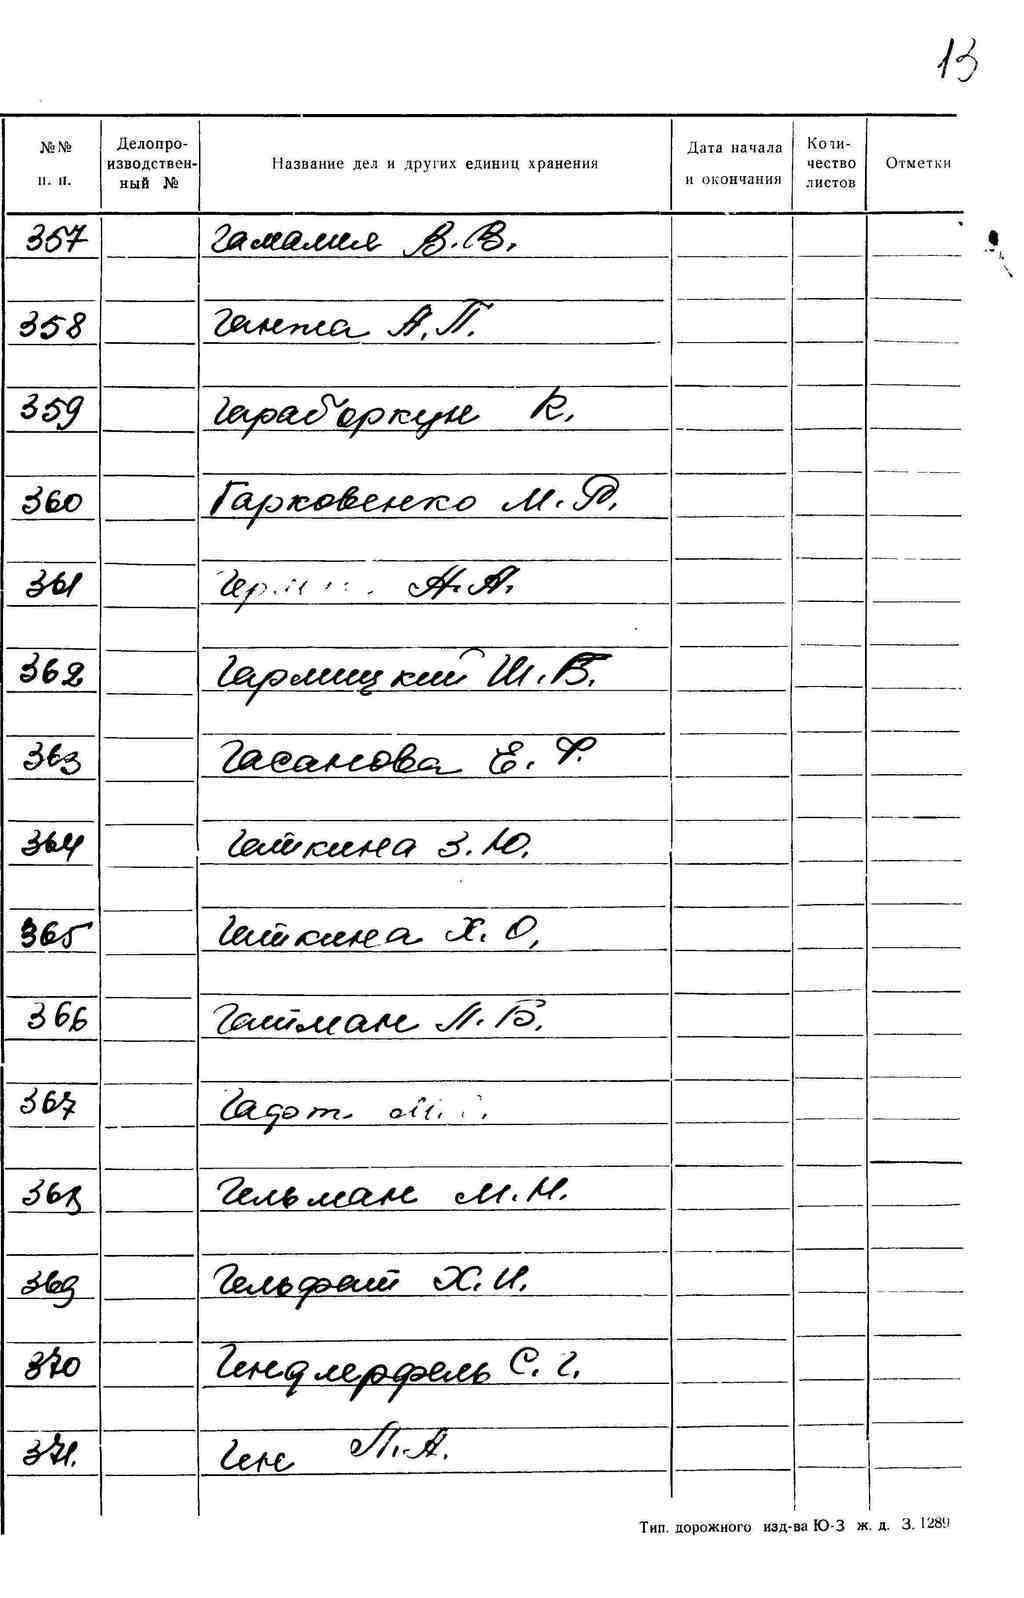 13
№№ п. п. Делопроизводствен-ный № Название дел и других единиц хранения Дата начала и окончания Коли-чество листов Отметки
357 Гамалия В. В.
358 Ганжа А. П.
359 К.
360 Гарковенко М. Ф.
361 А. А.
362 Гарлицкий Ш. Б.
363 Гасанова Е. Ф.
364 Гейкина З. Ю.
365 Гейкина Х. О.
366 Гейман Л. Б.
367
368 Гельман М. Н.
369 Гельфант Х. И.
370 С. Г.
371. Ген П. А.
Тип. дорожного изд-ва Ю-З ж. д. З. 1289